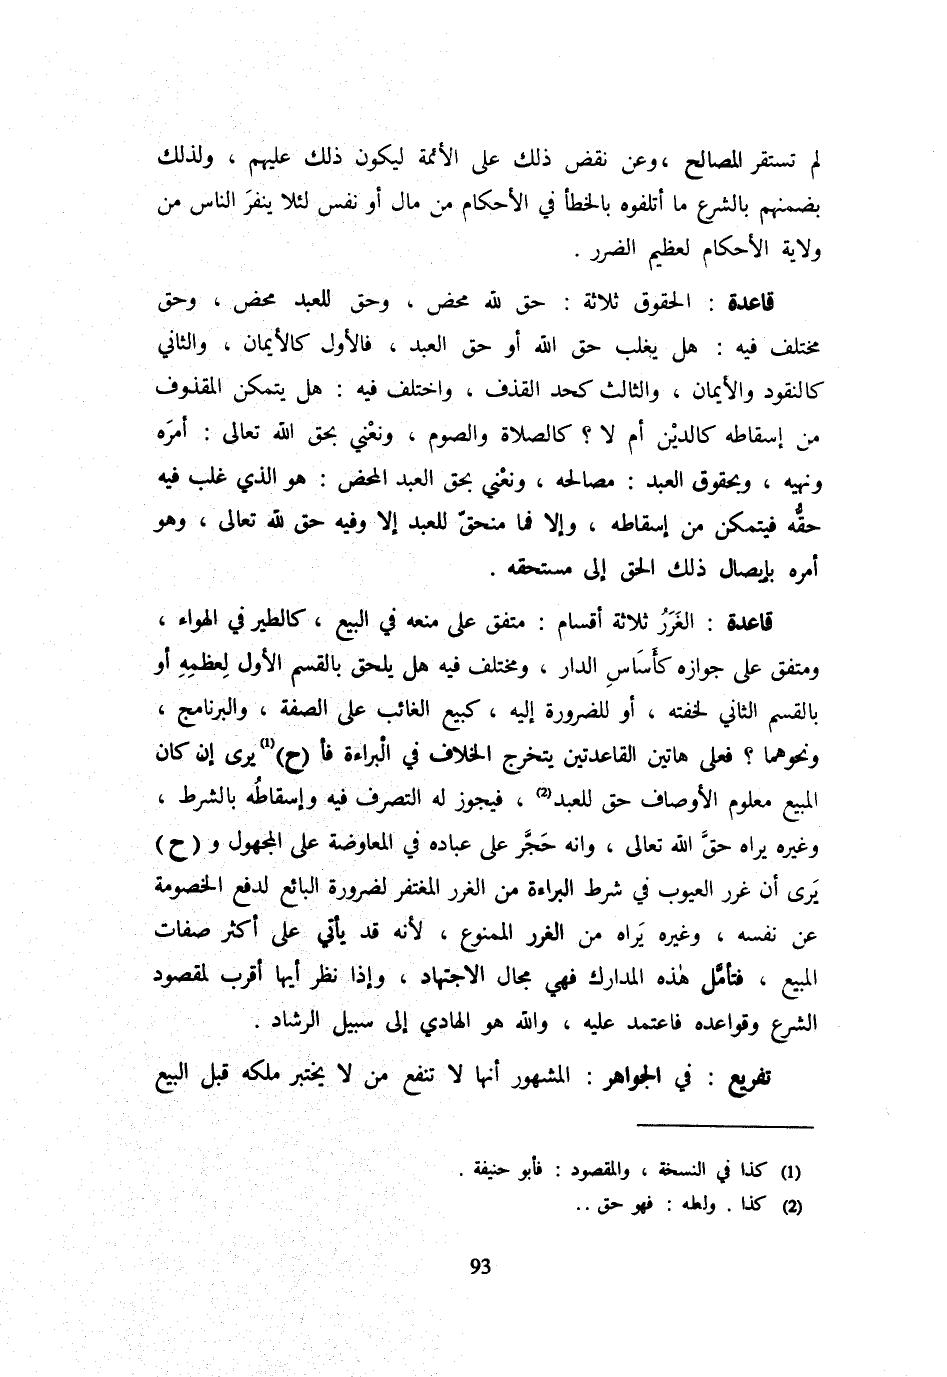 لم تستقر المصالح ،وعن نقض ذلك على الأئمة ليكون ذلك عليهم ، ولذلك
بضمنهم بالشرع ما أتلفوه بالخطأ في الأحكام من مال أو نفس لئلا ينفرَ الناس من
ولاية الأحكام لعظيم الضرر .
قاعدة : الحقوق ثلاثة : حق لله محض ، وحق للعبد محض ، وحق
مختلف فيه : هل يغلب حق الله أو حق العبد ، فالأول كالأيمان ، والثاني
كالنقود والأيمان ، والثالث كحد القذف ، واختلف فيه : هل يتمكن المقذوف
من إسقاطه كالديْن أم لا ؟ كالصلاة والصوم ، ونعْني بحق الله تعالى : أمرَه
ونهيه ، وبحقوق العبد : مصالحه ، ونعْني بحق العبد المحض : هو الذي غلب فيه
حقُّه فيتمكن من إسقاطه ، وإلا فما منحقّ للعبد إلا وفيه حق لله تعالى ، وهو
أمره بإيصال ذلك الحق إلى مستحقه .
قاعدة : الغَرَرُ ثلاثة أقسام : متفق على منعه في البيع ، كالطير في الهواء ،
ومتفق على جوازه كأَسَاسِ الدار ، ومختلف فيه هل يلحق بالقسم الأول لِعظمِهِ أو
بالقسم الثاني لخفته ، أو للضرورة إليه ، كبيع الغائب على الصفة ، والبرنامج ،
ونحوهما ؟ فعلى هاتين القاعدتين يتخرج الخلاف في الْبراءة فأ (ح)(1) يرى إن كان
المبيع معلوم الأوصاف حق للعبد(2) ، فيجوز له التصرف فيه وإسقاطُه بالشرط ،
وغيره يراه حقَّ الله تعالى ، وانه حَجَّر على عباده في المعاوضة على المجهول و (ح)
يَرى أن غرر العيوب في شرط البراءة من الغرر المغتفر لضرورة البائع لدفع الخصومة
عن نفسه ، وغيره يَراه من الغرر الممنوع ، لأنه قد يأتي على أكثر صفات
المبيع ، فتأمَّل هٰذه المدارك فهي مجال الاجتهاد ، وإذا نظر أيها أقرب لمقصود
الشرع وقواعده فاعتمد عليه ، والله هو الهادي إلى سبيل الرشاد .
تفريع : في الجواهر : المشهور أنها لا تنفع من لا يختبر ملكه قبل البيع
(1) كذا في النسخة ، والمقصود : فأبو حنيفة .
(2) كذا . ولعله : فهو حق ..
93